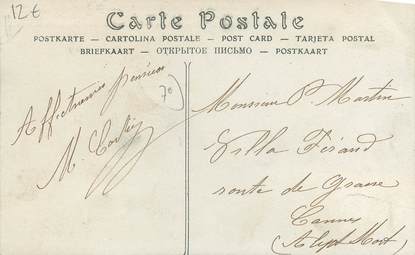 12€
Carte Postale
POSTKARTE — CARTOLINA POSTALE — POST CARD — TARJETA POSTAL
BRIEFKAART — ОТКРЫТОЕ ПИСЬМО — POSTKAART
70
Affectueuses pensées
M.
Monsieur P. Martin
Villa Férand
route de Grasse
Cannes
(Alpes Mari